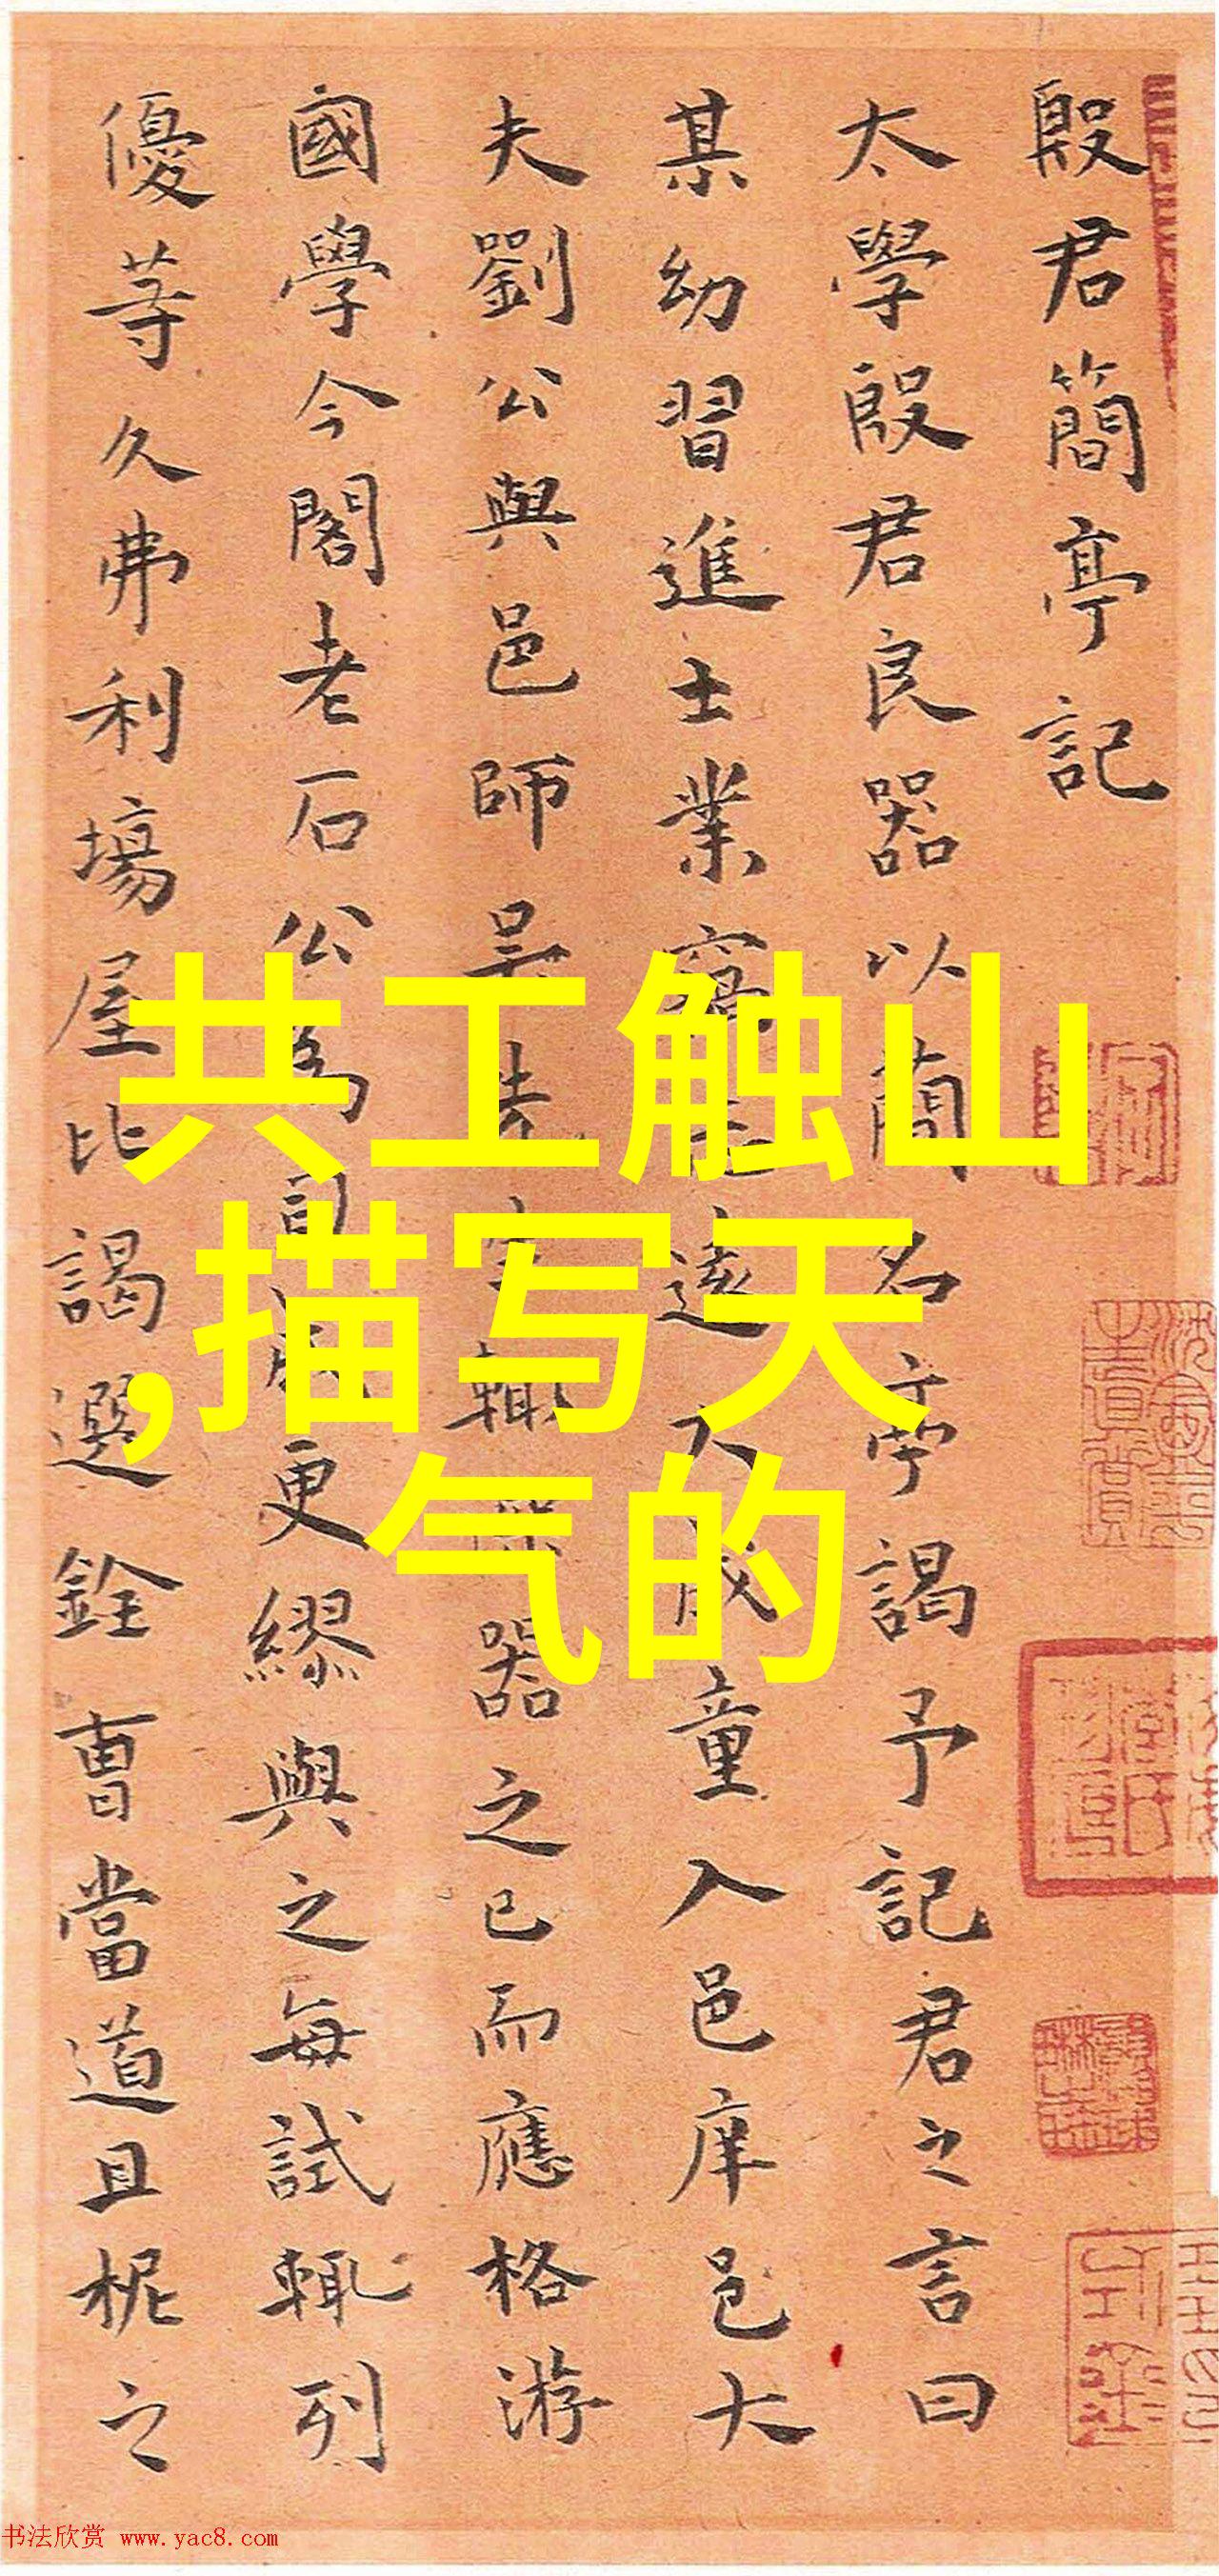 殷君簡亭記
太學殷君良器以蕳名亭謁予記君之言曰
某幼習進士業寓遠大成童入邑庠邑大
夫劉公與邑師器之已而應格游
國學今閣老石公為更繆與之每試輒列
優等久弗利場屋比謁選銓曹當道且柅之
共工触山
,描写天
气的
书法欣赏 www.yac8.com